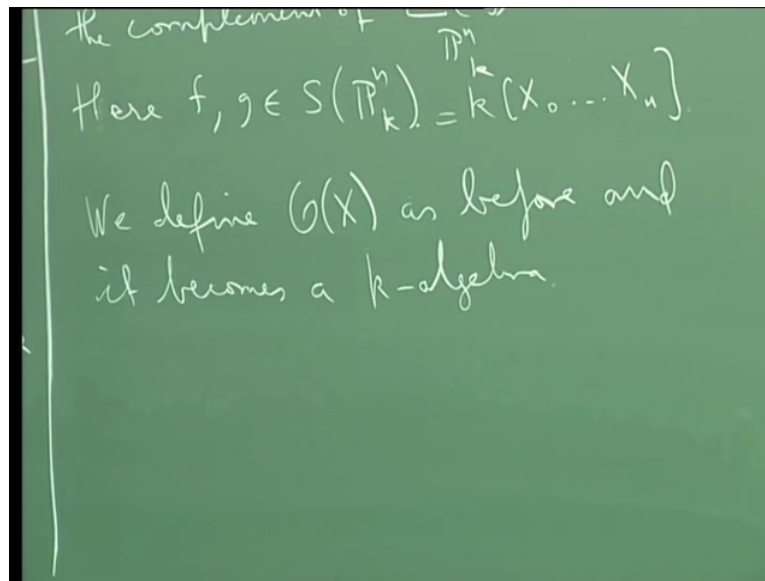 the complement of
ℙⁿₖ
Here f, g ∈ S(ℙⁿₖ) = k[X₀ ... Xₙ].
We define O(X) as before and
it becomes a k-algebra.